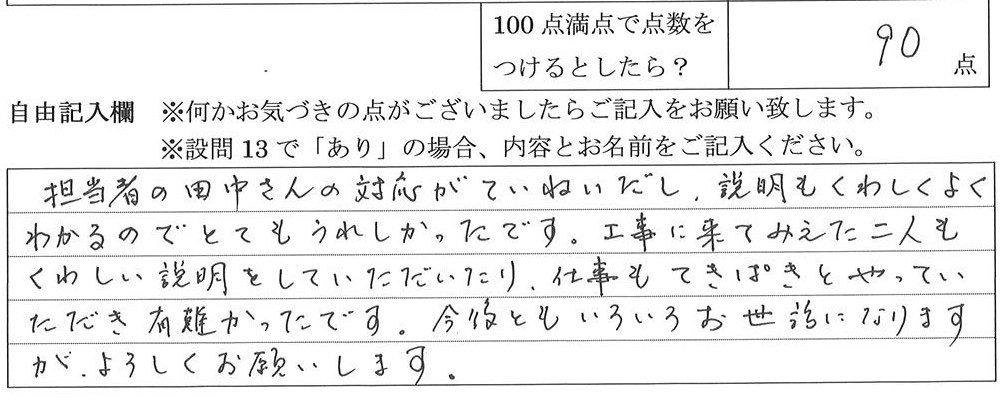 100点満点で点数を
つけるとしたら？
90 点
自由記入欄 ※何かお気づきの点がございましたらご記入をお願い致します。
※設問13で「あり」の場合、内容とお名前をご記入ください。
担当者の田中さんの対応がていねいだし、説明もくわしくよく
わかるのでとてもうれしかったです。工事に来てみえた二人も
くわしい説明をしていただいたり、仕事もてきぱきとやってい
ただき有難かったです。今後ともいろいろお世話になります
が、よろしくお願いします。